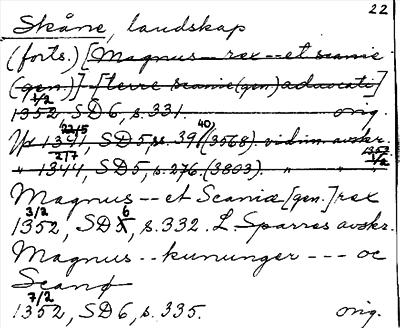 22
Skåne, landskap
(forts.) [Magnus -- rex -- et scanie
(gen)] [terre scanie (gen) advocati]
1352, 1/2 SD 6, s. 331. orig.
1341, 22/5 SD 5, s. 39, 40 (3568) vidim. avskr. 1352 1/2
" 1344, 2/7 SD 5, s. 276. (3803). " "
Magnus -- et Scaniæ [gen.] rex
1352, 3/2 SD 6, s. 332. L. Sparres avskr.
Magnus -- kununger --- oc
Scanø
1352, 7/2 SD 6, s. 335. orig.